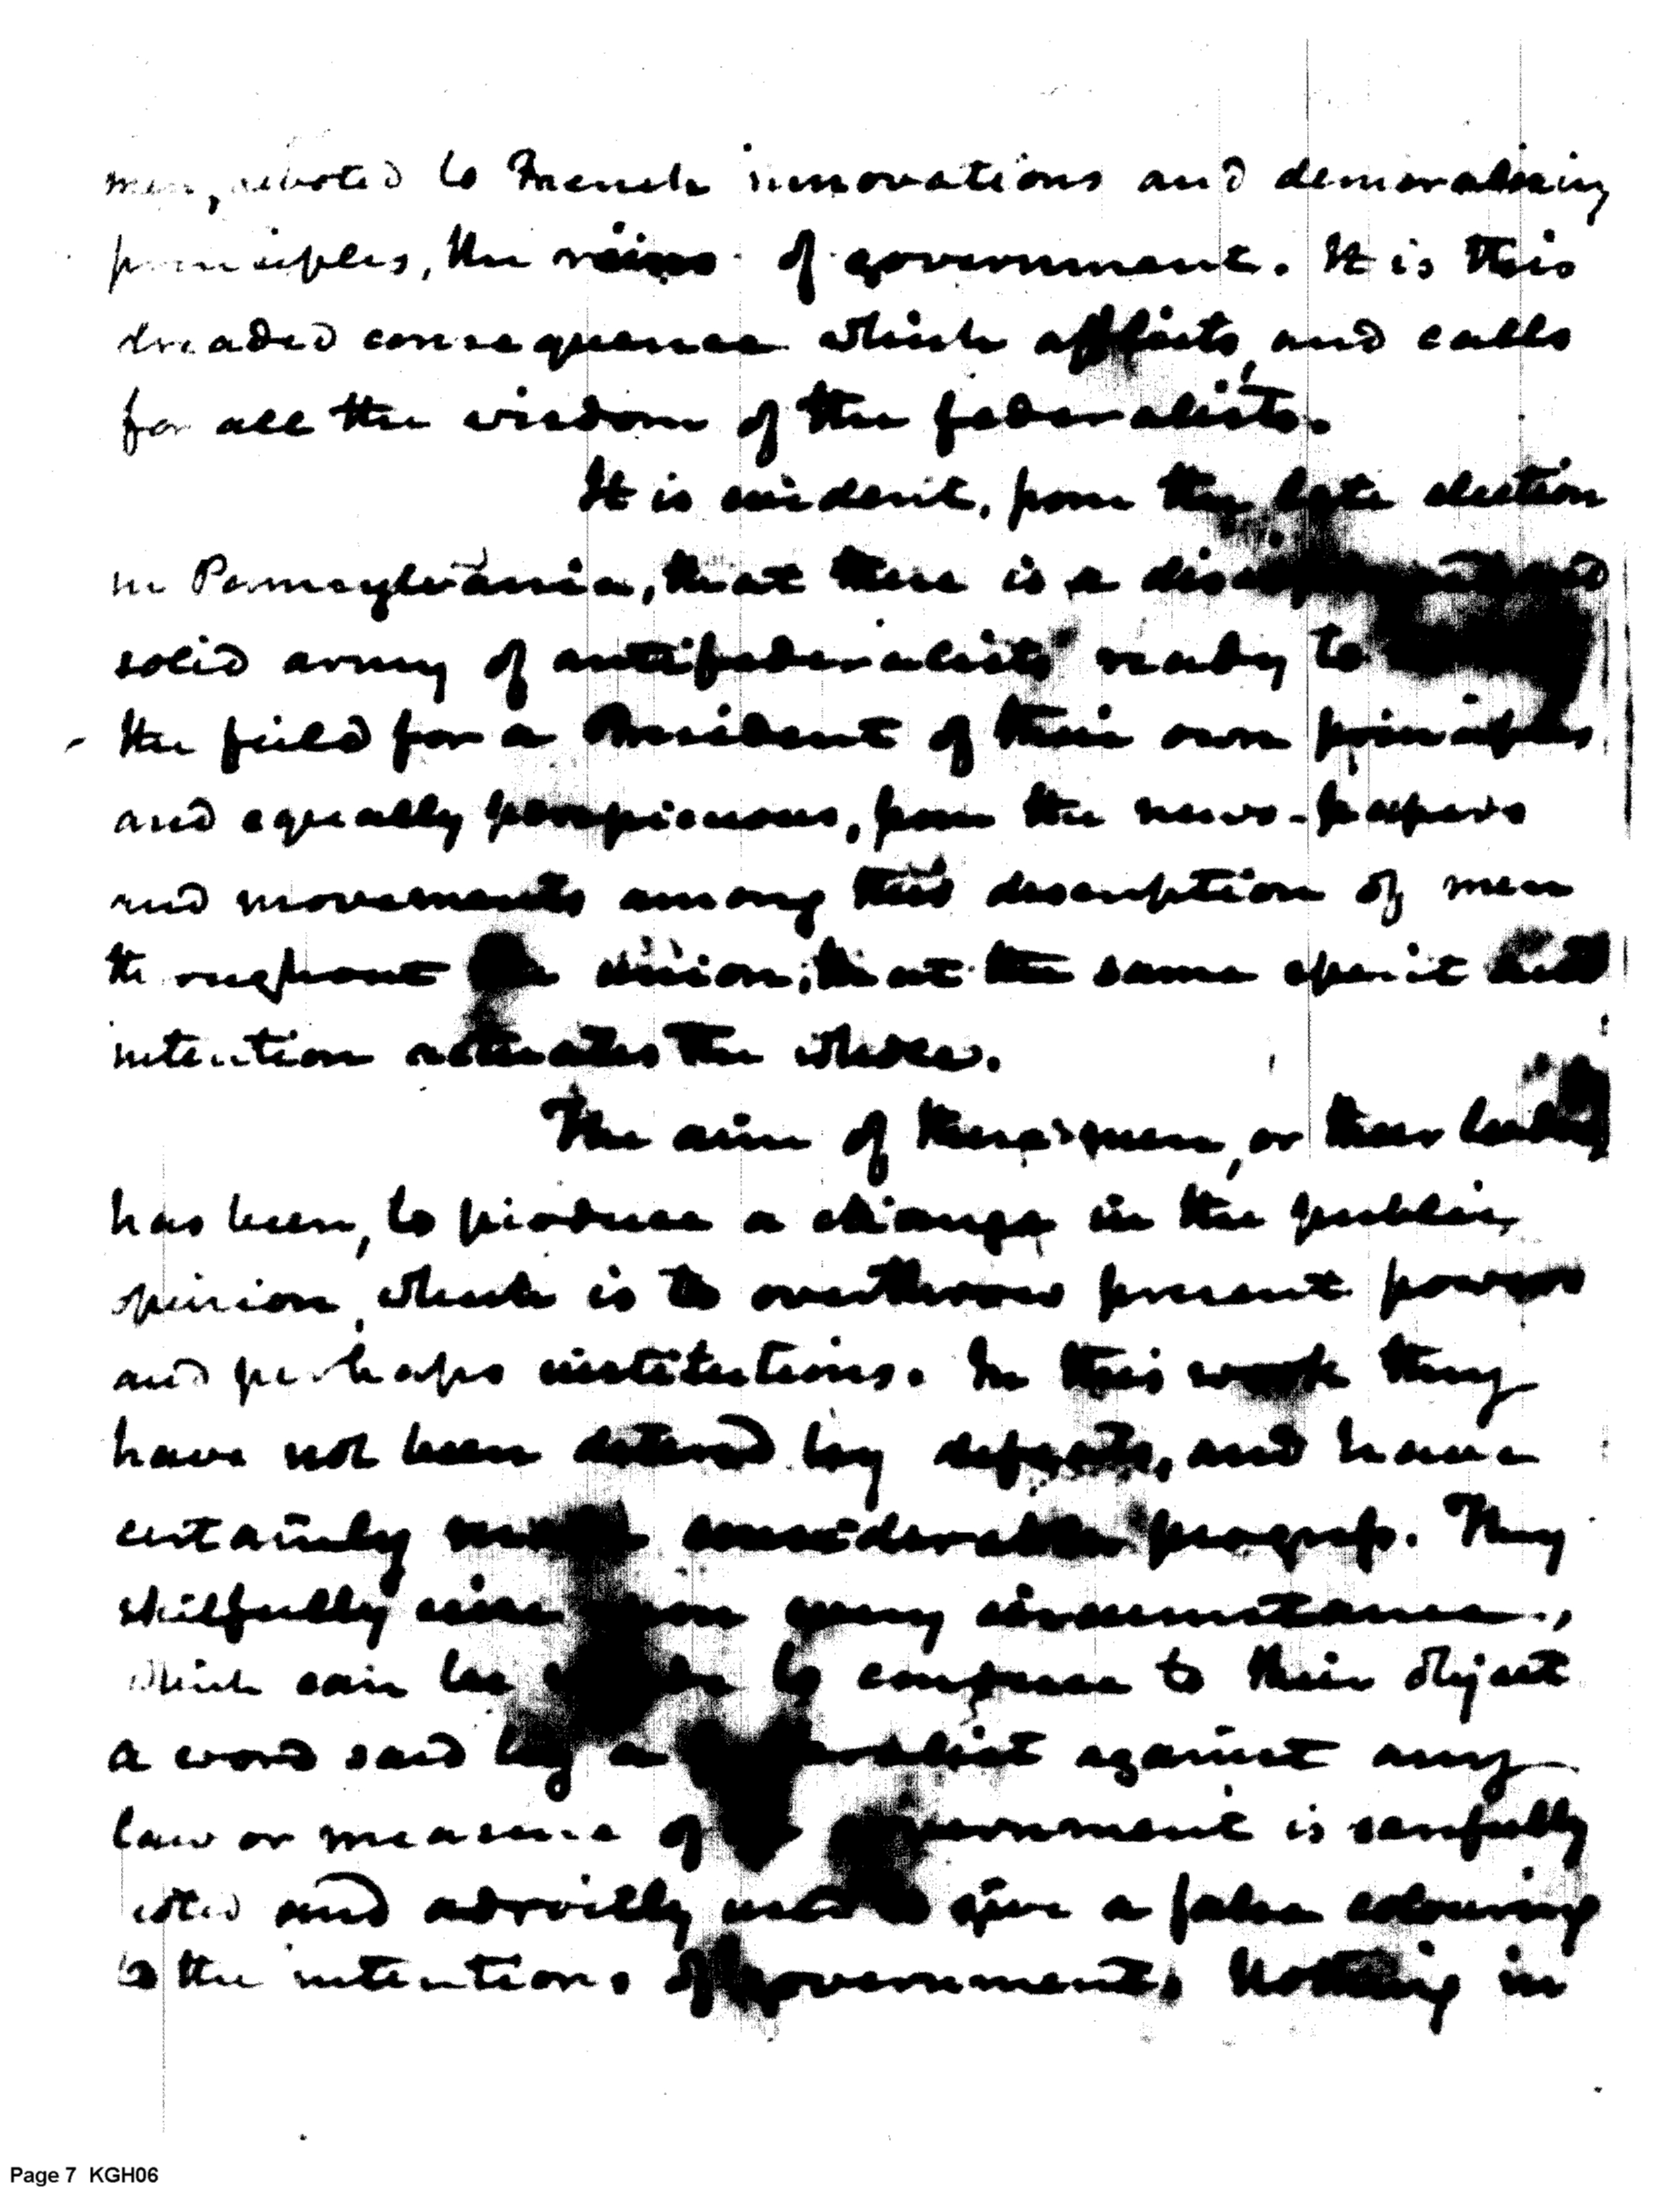 men, devoted to French innovations and demoralising
principles, the reins of government. It is this
dreaded consequence which afflicts, and calls
for all the wisdom of the federalists.
It is evident, from the late election
in Pennsylvania, that there is a and
solid army of antifederalists ready to
the feild for a President of their own principles
and equally perspicuous, from the news-papers
and movements among this description of men
throughout the union; that the same spirit and
intention actuates the whole.
The aim of these men, or their
has been, to produce a change in the public
opinion, which is to overthrow present powers
and perhaps institutions. In this work they
have not been detered by defeats, and have
certainly made considerable progress. They
skilfully seize upon every circumstance,
which can be made to conduce to their object
a word said by a federalist against any
law or measure of government is carefully
noted and adroitly give a false colouring
to the intentions of government. Nothing in
Page 7 KGH06